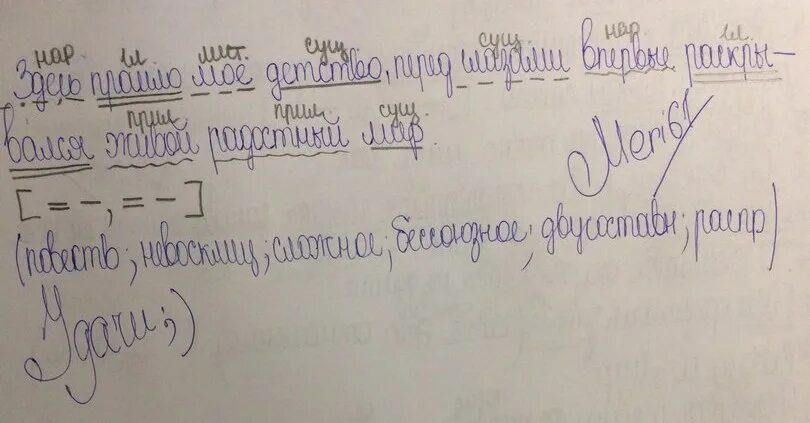 нар гл мест. сущ сущ. нар гл.
Здесь прошло моё детство, перед глазами впервые раскры-
прил прил сущ.
вался живой радостный мир.
Meri61
[= -, = -]
(повеств; невосклиц; сложное; бессоюзное; двусоставн; распр)
Удачи ;)